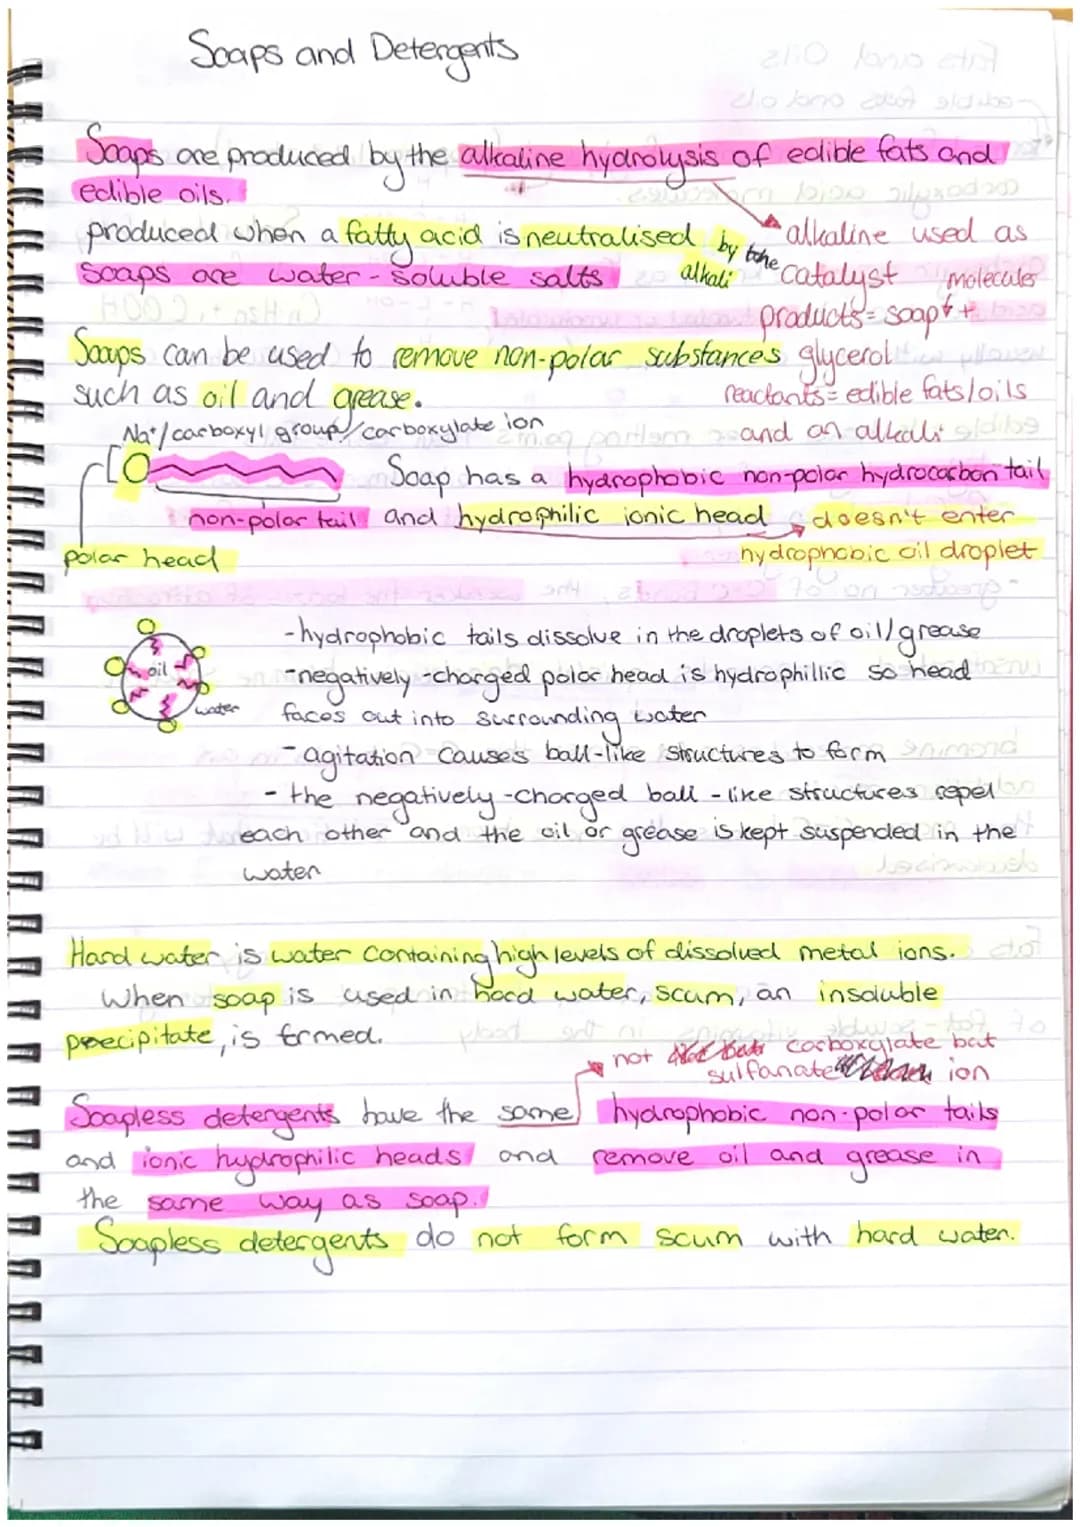 Soaps and Detergents
Soaps are produced by the alkaline hydrolysis of edible fats and
edible oils.
produced when a fatty acid is neutralised by the alkali
alkaline used as
catalyst
soaps are water-soluble salts
molecules
products = soap +
glycerol
Soaps can be used to remove non-polar substances
such as oil and grease.
reactants = edible fats/oils
and an alkali
Na+/carboxyl group/carboxylate ion
Soap has a hydrophobic non-polar hydrocarbon tail
non-polar tail and hydrophilic ionic head
doesn't enter
polar head
hydrophobic oil droplet
oil
water
-hydrophobic tails dissolve in the droplets of oil/grease
-negatively-charged polar head is hydrophillic so head
faces out into surrounding water
- agitation causes ball-like structures to form
- the negatively-charged ball-like structures repel
each other and the oil or grease is kept suspended in the
water
Hard water is water containing high levels of dissolved metal ions.
When soap is used in hard water, scum, an insoluble
precipitate, is formed.
not carboxylate but
sulfanate ion
Soapless detergents have the same hydrophobic non-polar tails
and ionic hydrophilic heads and remove oil and grease in
the same way as soap.
Soapless detergents do not form scum with hard water.